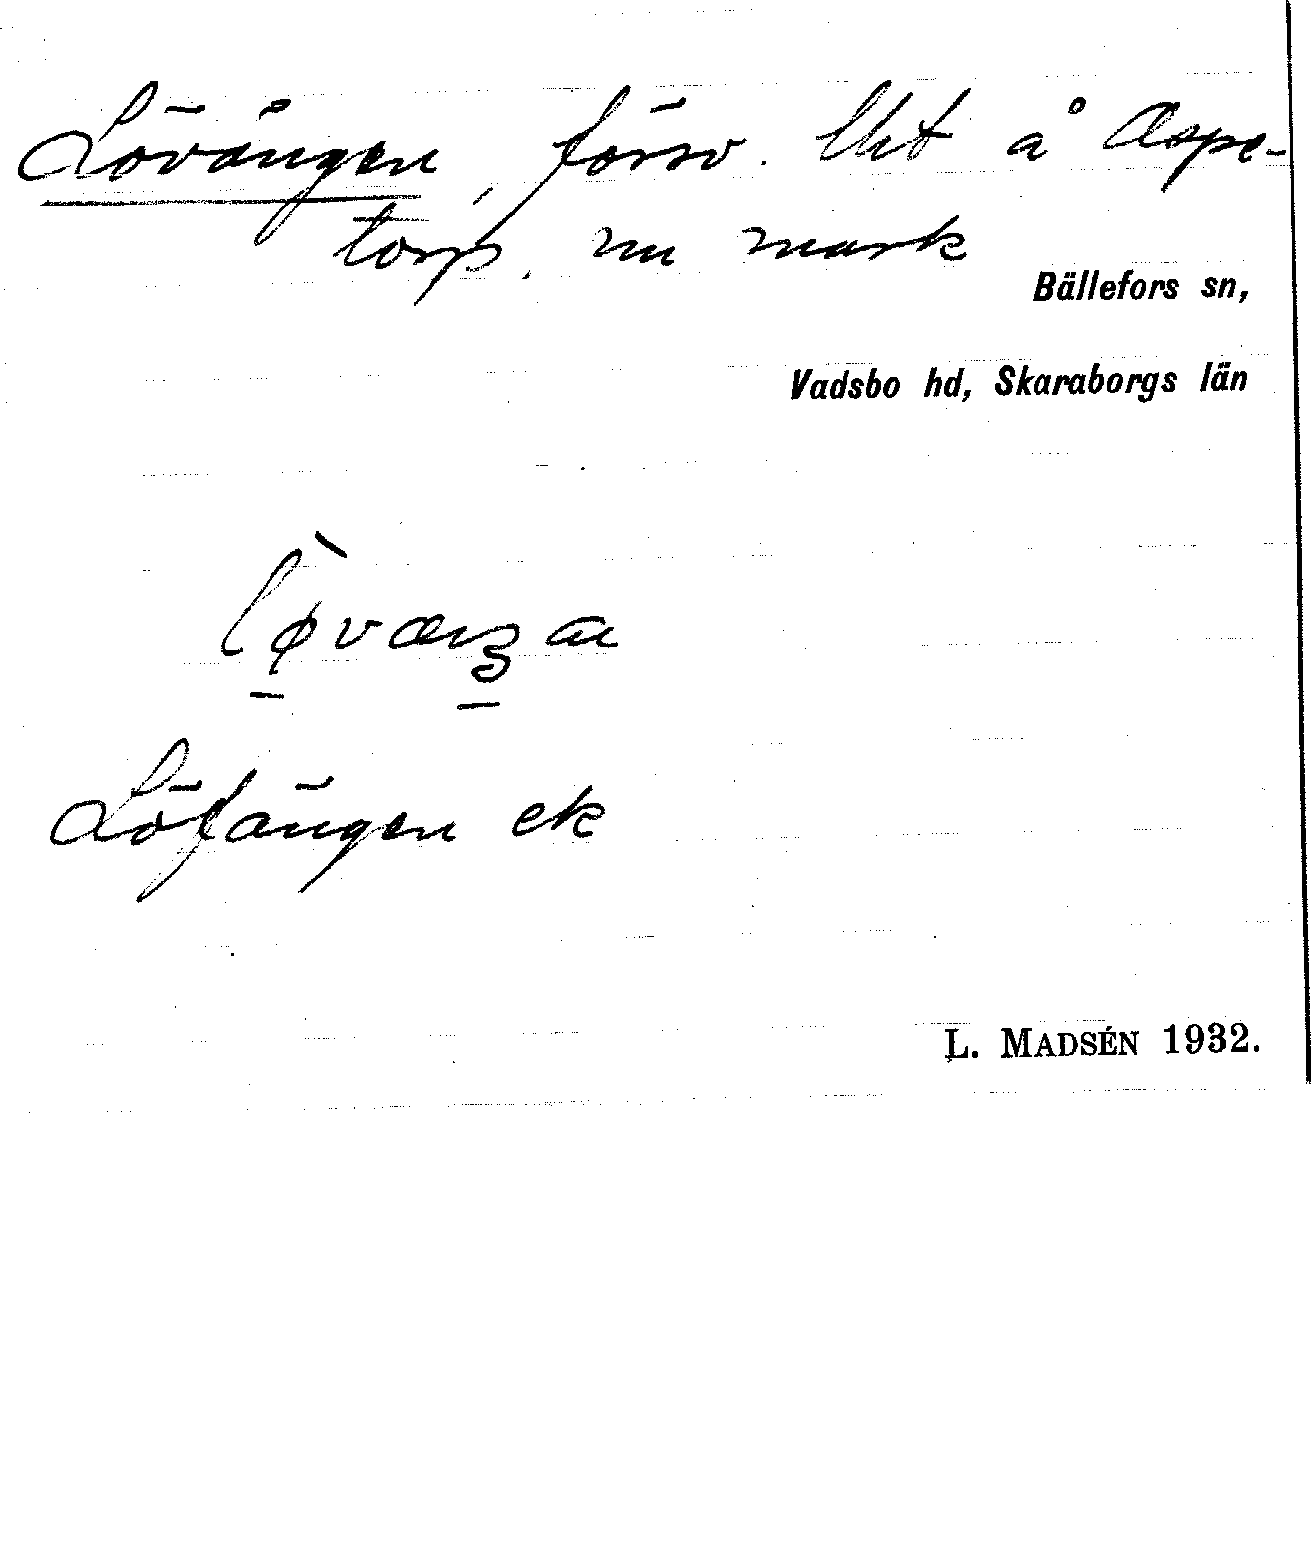 Lövängen, försv. lht å Aspe-
torp. nu mark
Bällefors sn,
Vadsbo hd, Skaraborgs län
Löfängen ek
L. MADSÉN 1932.